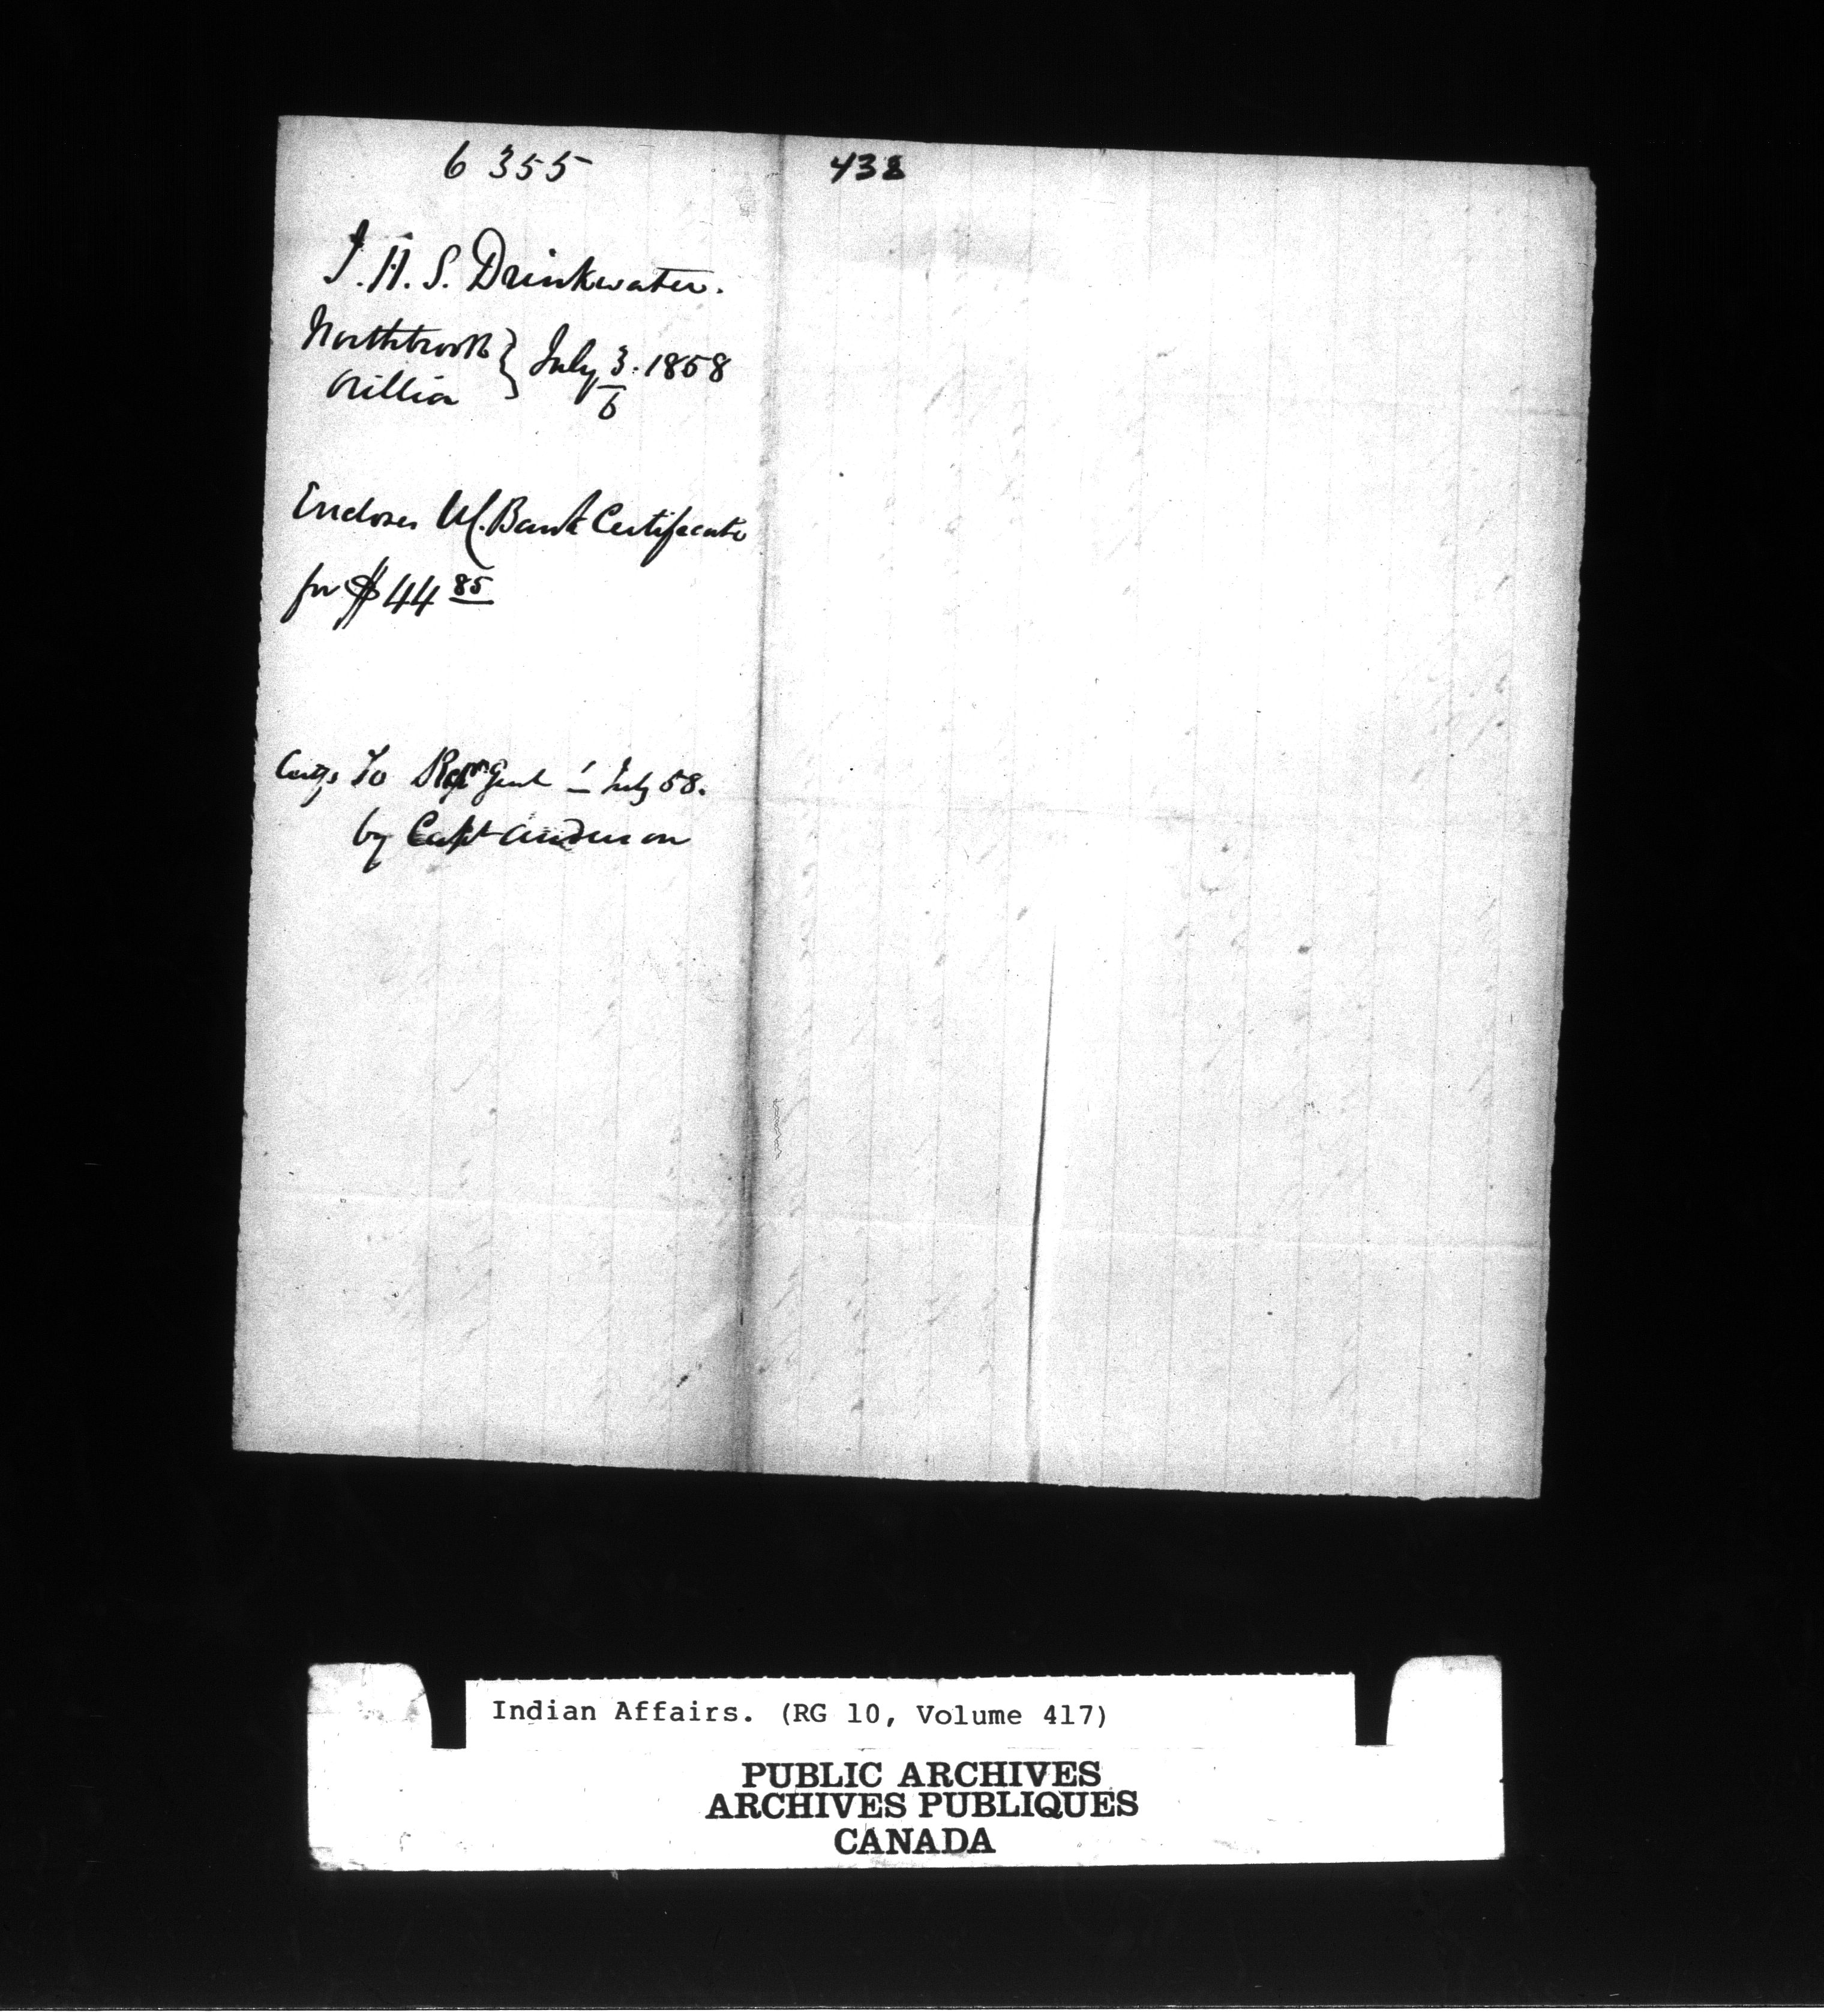 6355
438
J. H. S. Drinkwater.
Northbrook } July 3. 1858
Orillia 6
Encloses U C. Bank Certificate
for $44 85
to July 58.
by Capt Anderson
Indian Affairs. (RG 10, Volume 417)
PUBLIC ARCHIVES
ARCHIVES PUBLIQUES
CANADA